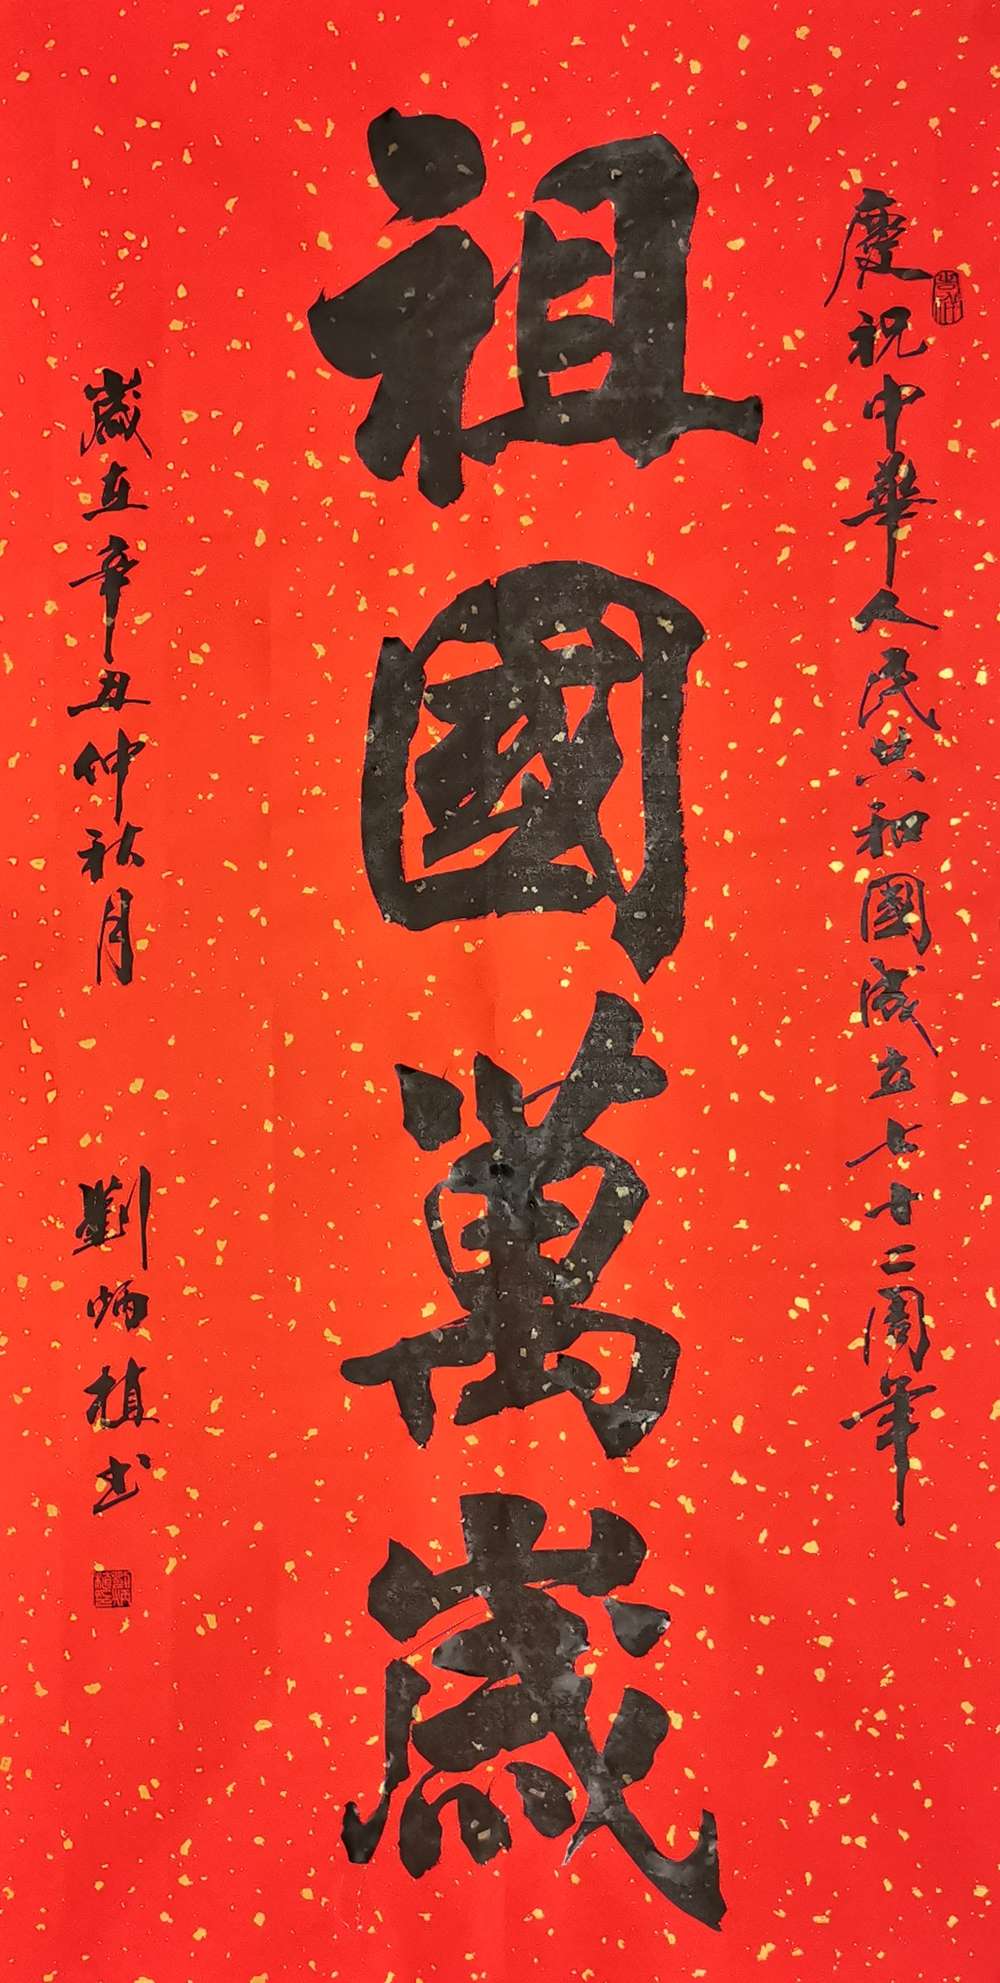 慶祝中華人民共和國成立七十二周年
祖國萬歲
歲在辛丑仲秋月
劉炳植書